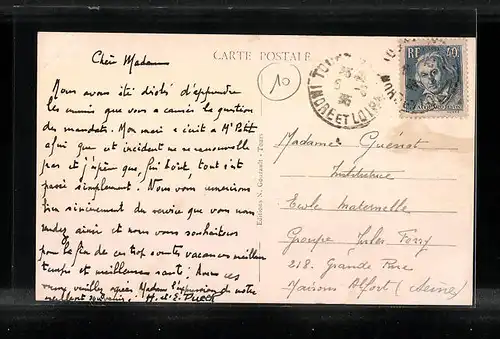 CARTE POSTALE
Chère Madame
10
Nous avons été désolés d'apprendre
les ennuis que vous a causés la question
des mandats. Mon mari a écrit à Mr Petit
afin que cet incident ne se renouvelle
pas et j'espère que, tout
passé simplement. Nous vous remercions
bien sincèrement du service que vous nous
rendez ainsi et nous vous souhaitons
pour la fin de ces trop courtes vacances meilleur
temps et meilleure santé. Avec ces
vœux veuillez agréer Madame l'expression de notre
H. et E.
Editions N. Gourault - Tours
TOURS
INDRE ET LOIRE
RF 40
Madame Guénot
Institutrice
Ecole Maternelle
Groupe Jules Ferry
218. Grande Rue
Maisons Alfort (Seine)